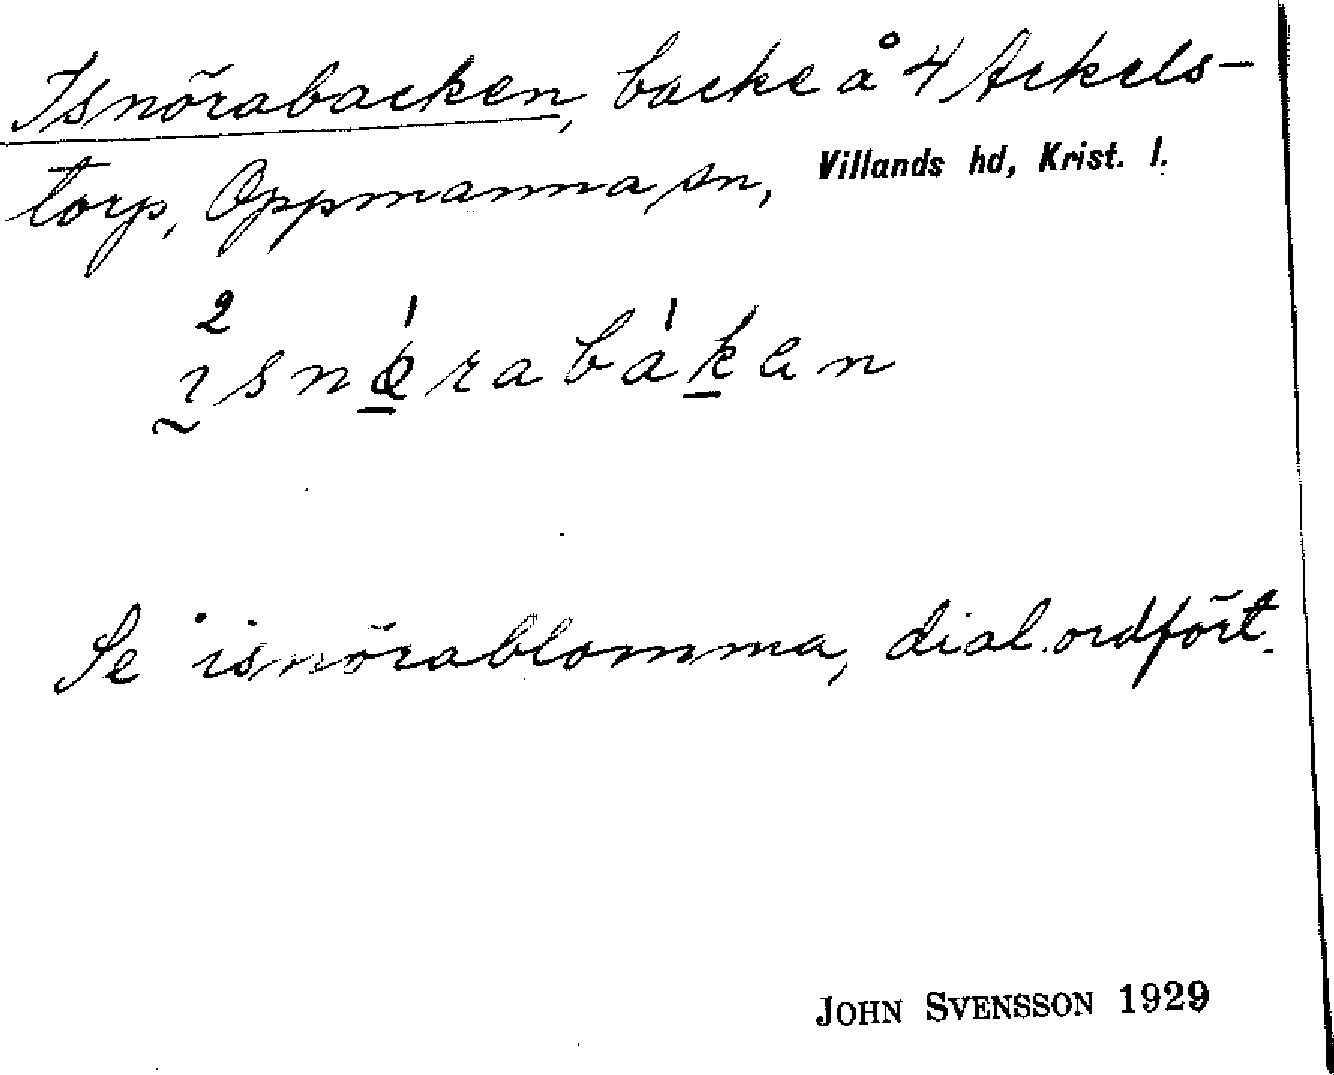 Isnörabacken, backe å 4 Arkels-
torp, Oppmanna sn, Villands hd, Krist. l.
Se isnörablomma, dial. ordfört.
JOHN SVENSSON 1929